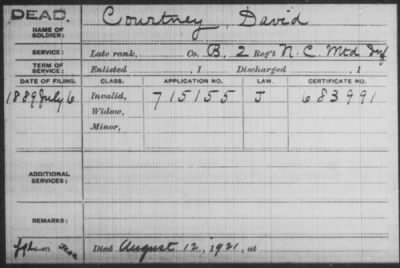 DEAD.
NAME OF SOLDIER: Courtney, David
SERVICE: Late rank, Co. B, 2 Reg't N. C. Mtd Inf
TERM OF SERVICE: Enlisted , 1 Discharged , 1
DATE OF FILING. CLASS. APPLICATION NO. LAW. CERTIFICATE NO.
1889 July 6 Invalid, 715155 J 683991
Widow,
Minor,
ADDITIONAL SERVICES:
REMARKS:
Died August 12, 1921, at